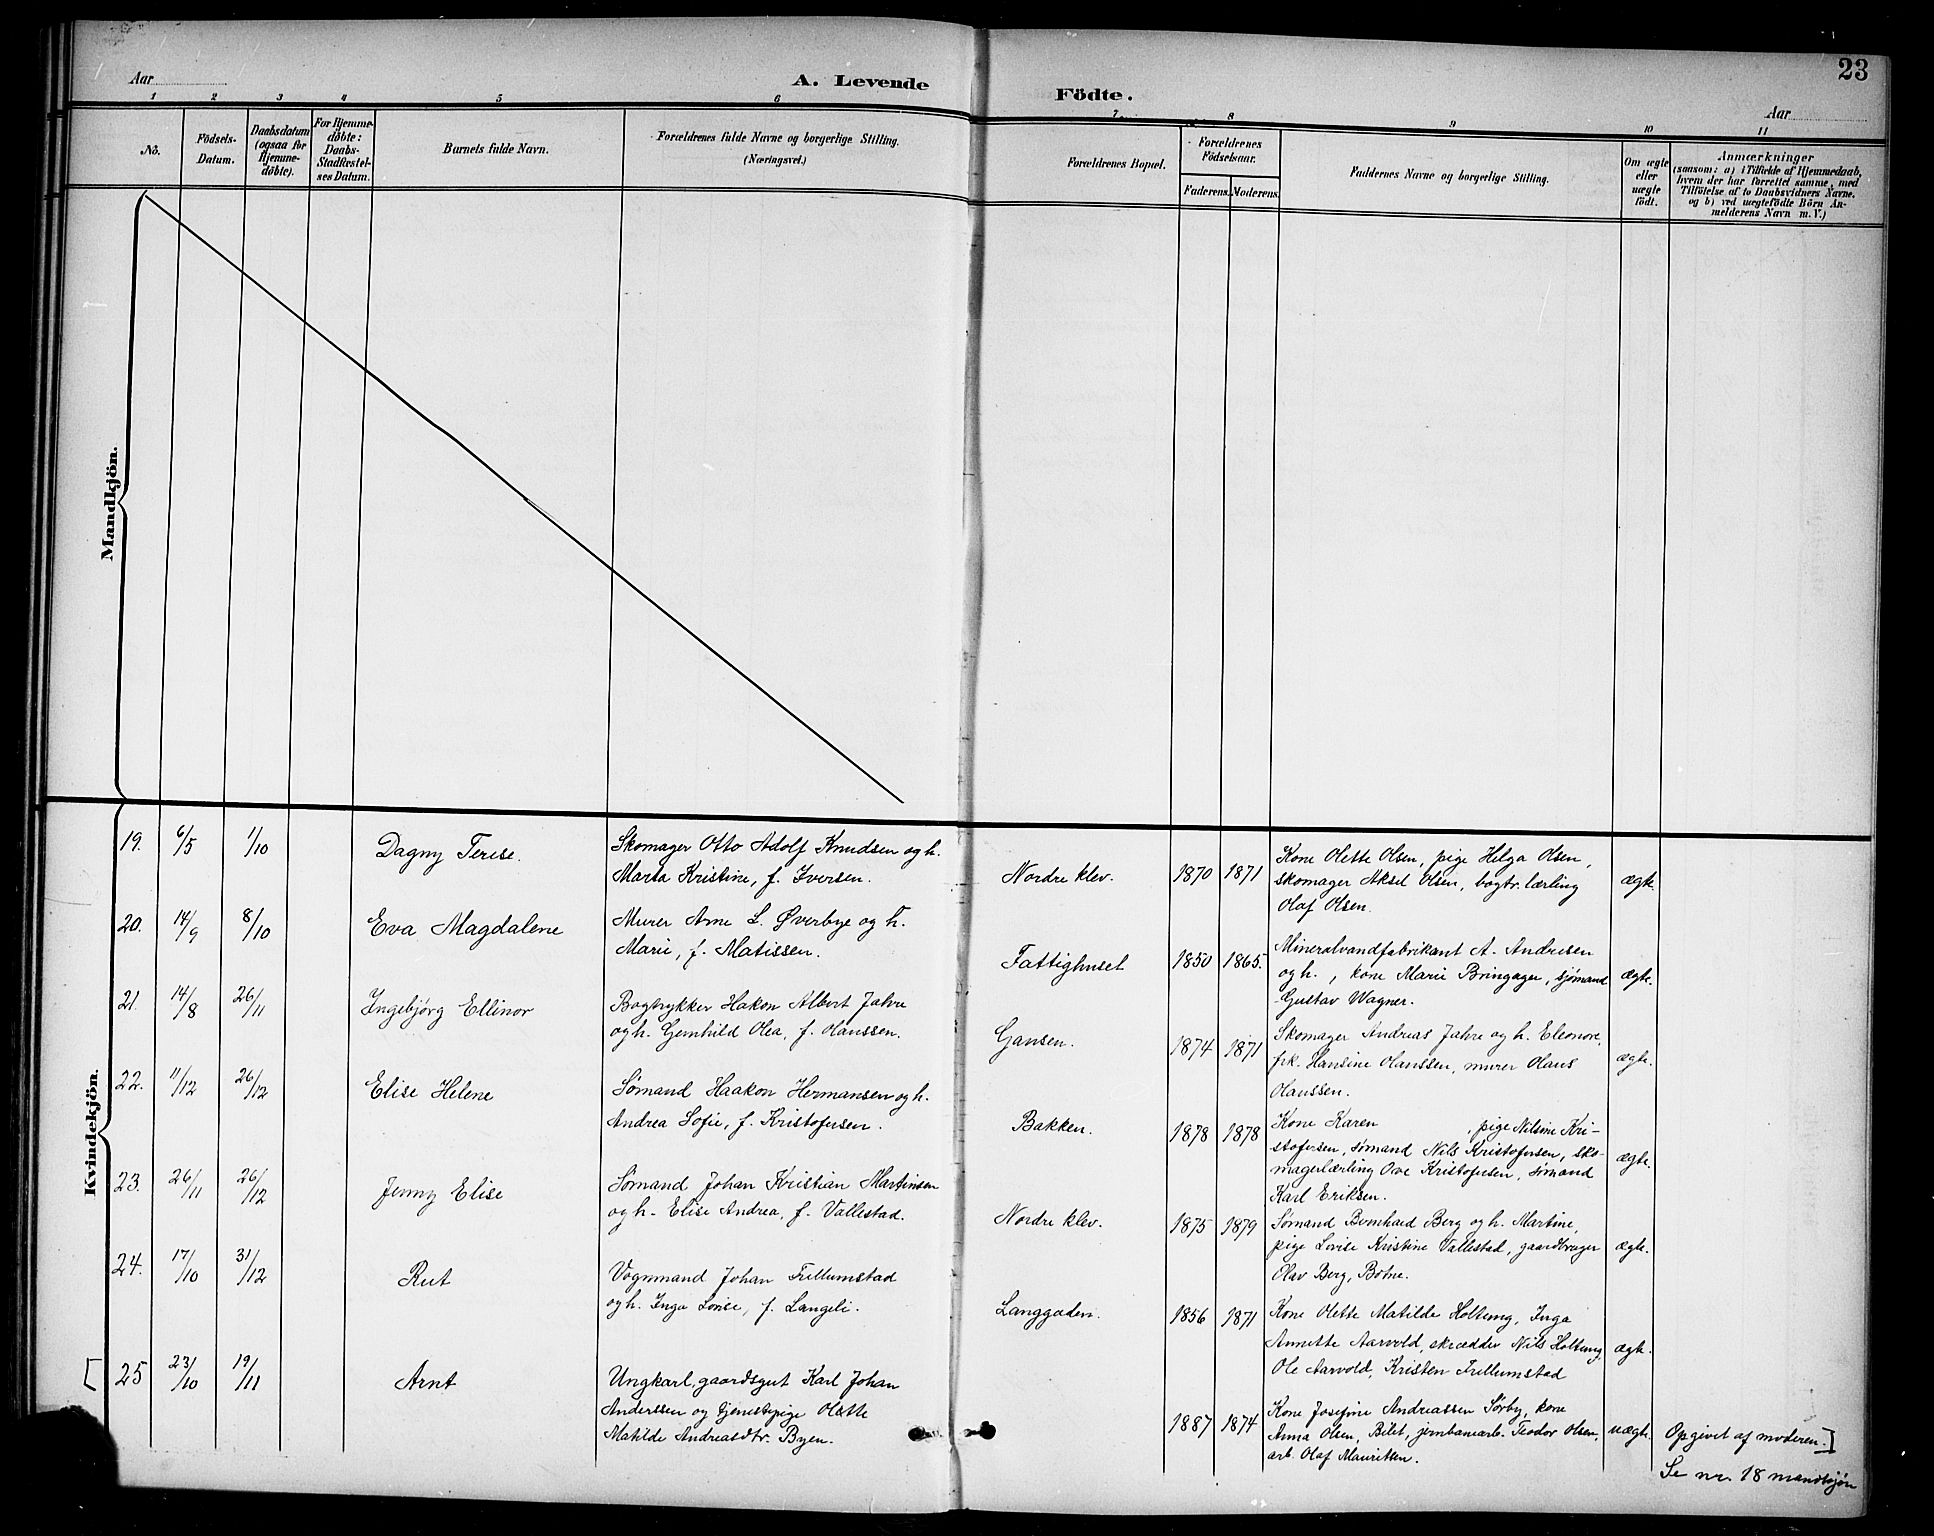 23
Aar
A. Levende
Födte.
Aar
1
2
3
4
5
6
7
8
9
10
11
No.
Födsels-
Datum.
Daabsdatum
(ogsaa for
Hjemme-
döbte).
For Hjemme-
døbte:
Daabs-
Stadfæstel-
ses Datum.
Barnets fulde Navn.
Forældrenes fulde Navne og borgerlige Stilling.
(Næringsvei.)
Forældrenes Bopæl.
Forældrenes
Födselsaar.
Faderens.
Moderens.
Faddernes Navne og borgerlige Stilling.
Om ægte
eller
uægte
födt.
Anmærkninger
(saasom: a) i Tilfælde af Hjemmedaab,
hvem der har forrettet samme, med
Tilföielse af to Daabsvidners Navne,
og b) ved uægtefödte Börn An-
melderens Navn m. V.)
Mandkjön.
Kvindekjön.
19.
6/5
1/10
Dagny Terese.
Skomager Otto Adolf Knudsen og h.
Marta Kristine, f. Iversen.
Nordre klev.
1870
1871
Kone Olette Olsen, pige Helga Olsen,
skomager Aksel Olsen, bogtr. lærling
Olaf Olsen.
ægte.
20.
14/9
8/10
Eva Magdalene
Murer Arne L. Øverbye og h.
Marie, f. Matissen.
Fattighuset
1850
1865.
Mineralvandfabrikant A. Andresen
og h., kone Marie Bringager, sjømand
Gustav Wagner.
ægte.
21.
14/8
26/11
Ingebjørg Ellinor
Bogtrykker Hakon Albert Jahre
og h. Gernhild Olea, f. Olaussen.
Gansen.
1874
1871
Skomager Andreas Jahre og h. Eleonore,
frk. Hansine Olaussen, murer Olaus
Olaussen.
ægte.
22.
11/12
26/12
Elise Helene
Sømand Haakon Hermansen og h.
Andrea Sofie, f. Kristofersen.
Bakken.
1878
1878
Kone Karen , pige Nilsine Kri-
stofersen, sømand Nils Kristofersen, sko-
magerlærling Ove Kristofersen, sømand
Karl Eriksen.
ægte.
23.
26/11
26/12
Jenny Elise
Sømand Johan Kristian Martinsen
og h. Elise Andrea, f. Vallestad.
Nordre klev.
1875
1879
Sømand Bernhard Berg og h. Martine,
pige Lovise Kristine Vallestad, gaardbruger
Olav Berg, Botne.
ægte.
24.
17/10
31/12
Rut
Vognmand Johan Frellumstad
og h. Inga Lovise, f. Langeli.
Langgaden.
1856
1871
Kone Olette Matilde Holtung, Inga
Annette Aarvold, skrædder Nils Holtung,
Ole Aarvold, Kristen Frellumstad
ægte.
[
25
23/10
19/11
Arnt
Ungkarl gaardsgut Karl Johan
Anderssen og tjenestepige Olette
Matilde Andreasdtr. Byen.
1887
1874
Kone Josefine Andreassen Sørby, kone
Anna Olsen, Bilet, jernbanearb. Teodor Olsen,
arb. Olaf Mauritsen.
uægte.
Opgivet af moderen.]
Se nr. 18 mandkjøn